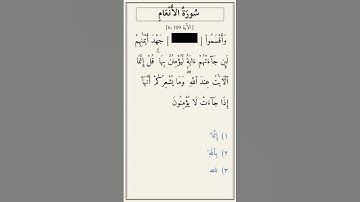 سُورَةُ الأَنْعَامِ
[الآية 109 :6]
وَأَقْسَمُوا۟ [ ] جَهْدَ أَيْمَٰنِهِمْ
لَئِن جَآءَتْهُمْ ءَايَةٌ لَّيُؤْمِنُنَّ بِهَا ۚ قُلْ إِنَّمَا
ٱلْءَايَٰتُ عِندَ ٱللَّهِ ۖ وَمَا يُشْعِرُكُمْ أَنَّهَآ
إِذَا جَآءَتْ لَا يُؤْمِنُونَ
١)
٢) بِٱللَّهِ
٣) تالله